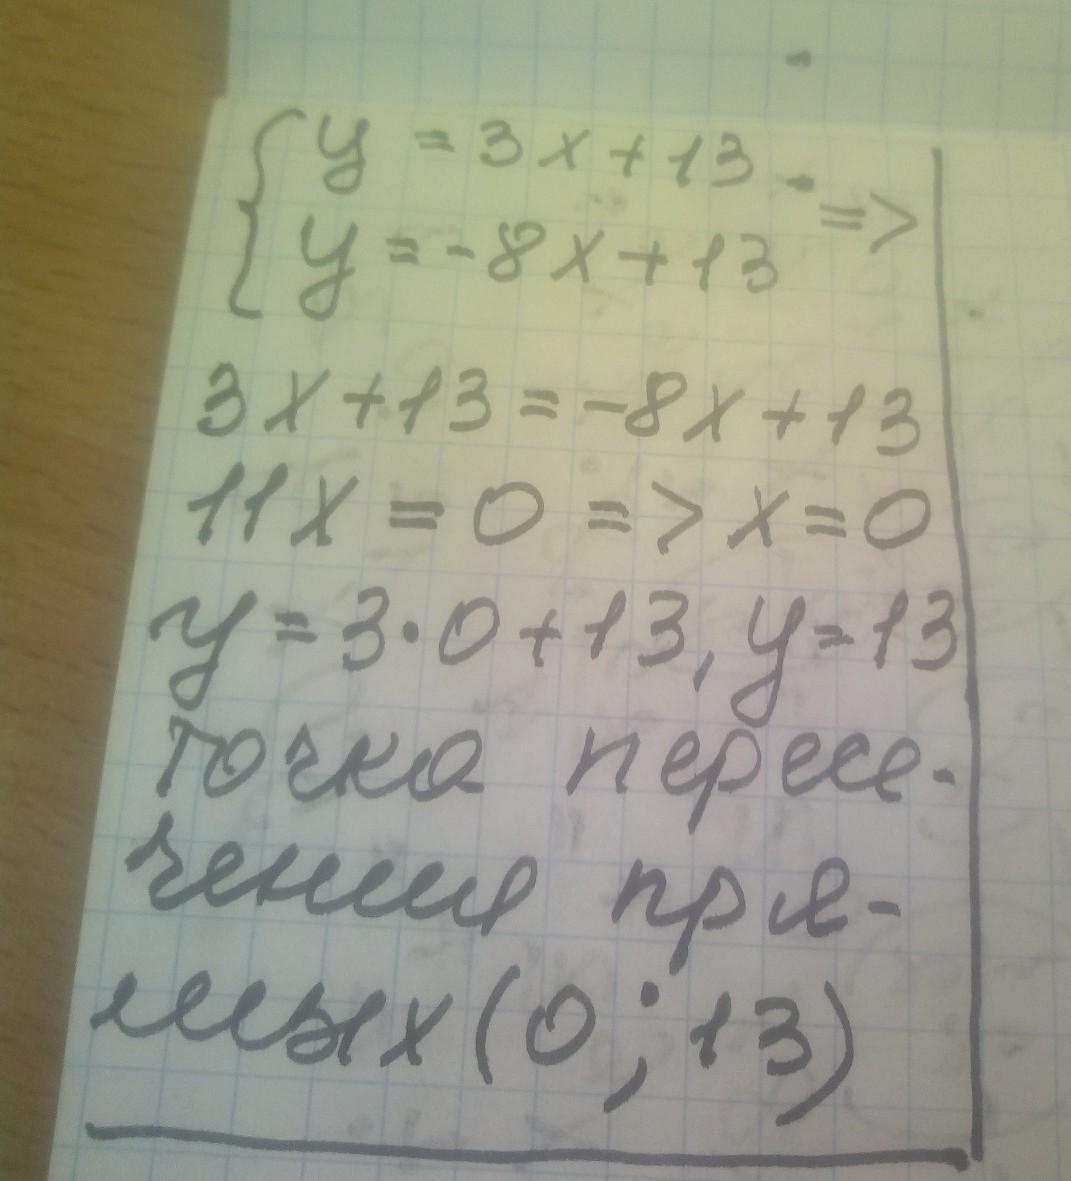 { y = 3x + 13
{ y = -8x + 13 =>
3x + 13 = -8x + 13
11x = 0 => x = 0
y = 3 · 0 + 13, y = 13
точка пересе-
чения пря-
мых (0 ; 13)